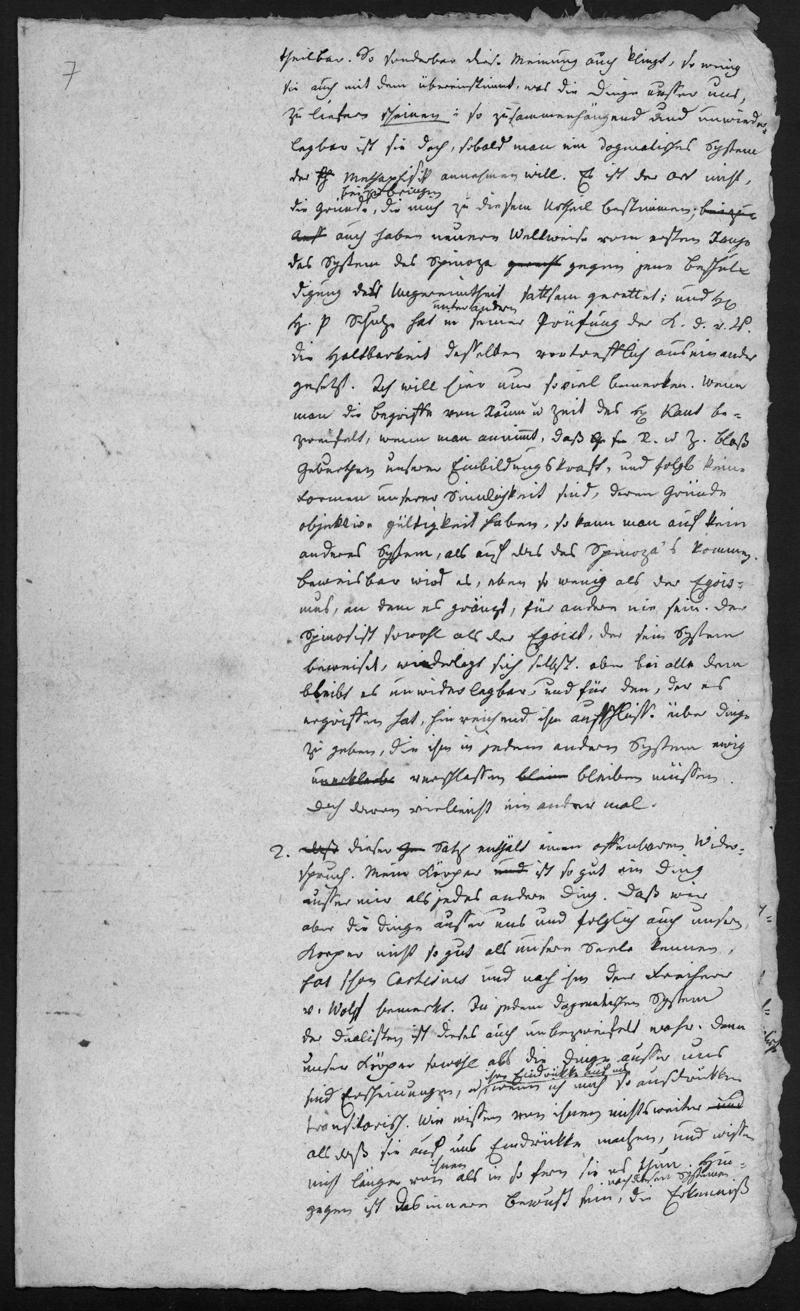 7
theilbar. So sonderbar diese Meinung auch klingt, so wenig
sie auch mit dem übereinstimmt, was die Dinge ausser uns,
zu liefern scheinen: so zusammenhängend und unwieder-
legbar ist sie doch, sobald man ein dogmatisches System
der Metaphisik annehmen will. Es ist der Ort nicht,
die Gründe, die mich zu diesem Urtheil bestimmen,
beizubringen
auch haben neuere Weltweise vom ersten Range
das System des Spinoza gegen jene Beschul-
digung der Ungereimtheit sattsam gerettet; und
H. P Schulze hat in seiner Prüfung der K. d. r. V.
unter andern
die Haltbarkeit desselben vortrefflich auseinander
gesetzt. Ich will hier nur soviel bemerken. Wenn
man die Begriffe von Raum u Zeit des H Kant be-
zweifelt, wenn man annimt, daß R. u Z. bloß
Geburthen unserer Einbildungskraft, und folgl keine
Formen unserer Sinnlichkeit sind, deren Gründe
objektive Gültigkeit haben, so kann man auf kein
anderes System, als auf das des Spinoza's kommen.
Beweisbar wird es, eben so wenig als der Egois-
mus, an dem es gränzt, für andere nie sein. Der
Spinosist sowohl als der Egoist, der sein System
beweiset, wiederlegt sich selbst. Aber bei alle dem
bleibt es unwiderlegbar, und für den, der es
ergriffen hat, hinreichend ihm Aufschlüsse über Dinge
zu geben, die ihm in jedem andern System ewig
verschlossen bleiben müssen.
Doch davon vielleicht ein ander mal.
2. dieser Satz enthält einen offenbaren Wider-
spruch. Mein Körper ist so gut ein Ding
ausser mir als jedes andere Ding. Daß wir
aber die Dinge ausser uns und folglich auch unsern
Körper nicht so gut als unsere Seele kennen,
hat schon Cartesius und nach ihm der Freiherr
v. Wolf bemerkt. In jedem dogmatischen System
der Dualisten ist dieses auch unbezweifelt wahr. Denn
unser Körper sowohl als die Dinge ausser uns
sind Erscheinungen, wenn ich mich so ausdrükken
ihre Eindrükke auf uns
transitorisch. Wir wissen von ihnen nichts weiter
als daß sie auf uns Eindrükke machen, und wissen
nicht länger von ihnen als in so fern sie es thun. Hin-
nach diesen Systemen
gegen ist das innere Bewust sein, die Erkenniß